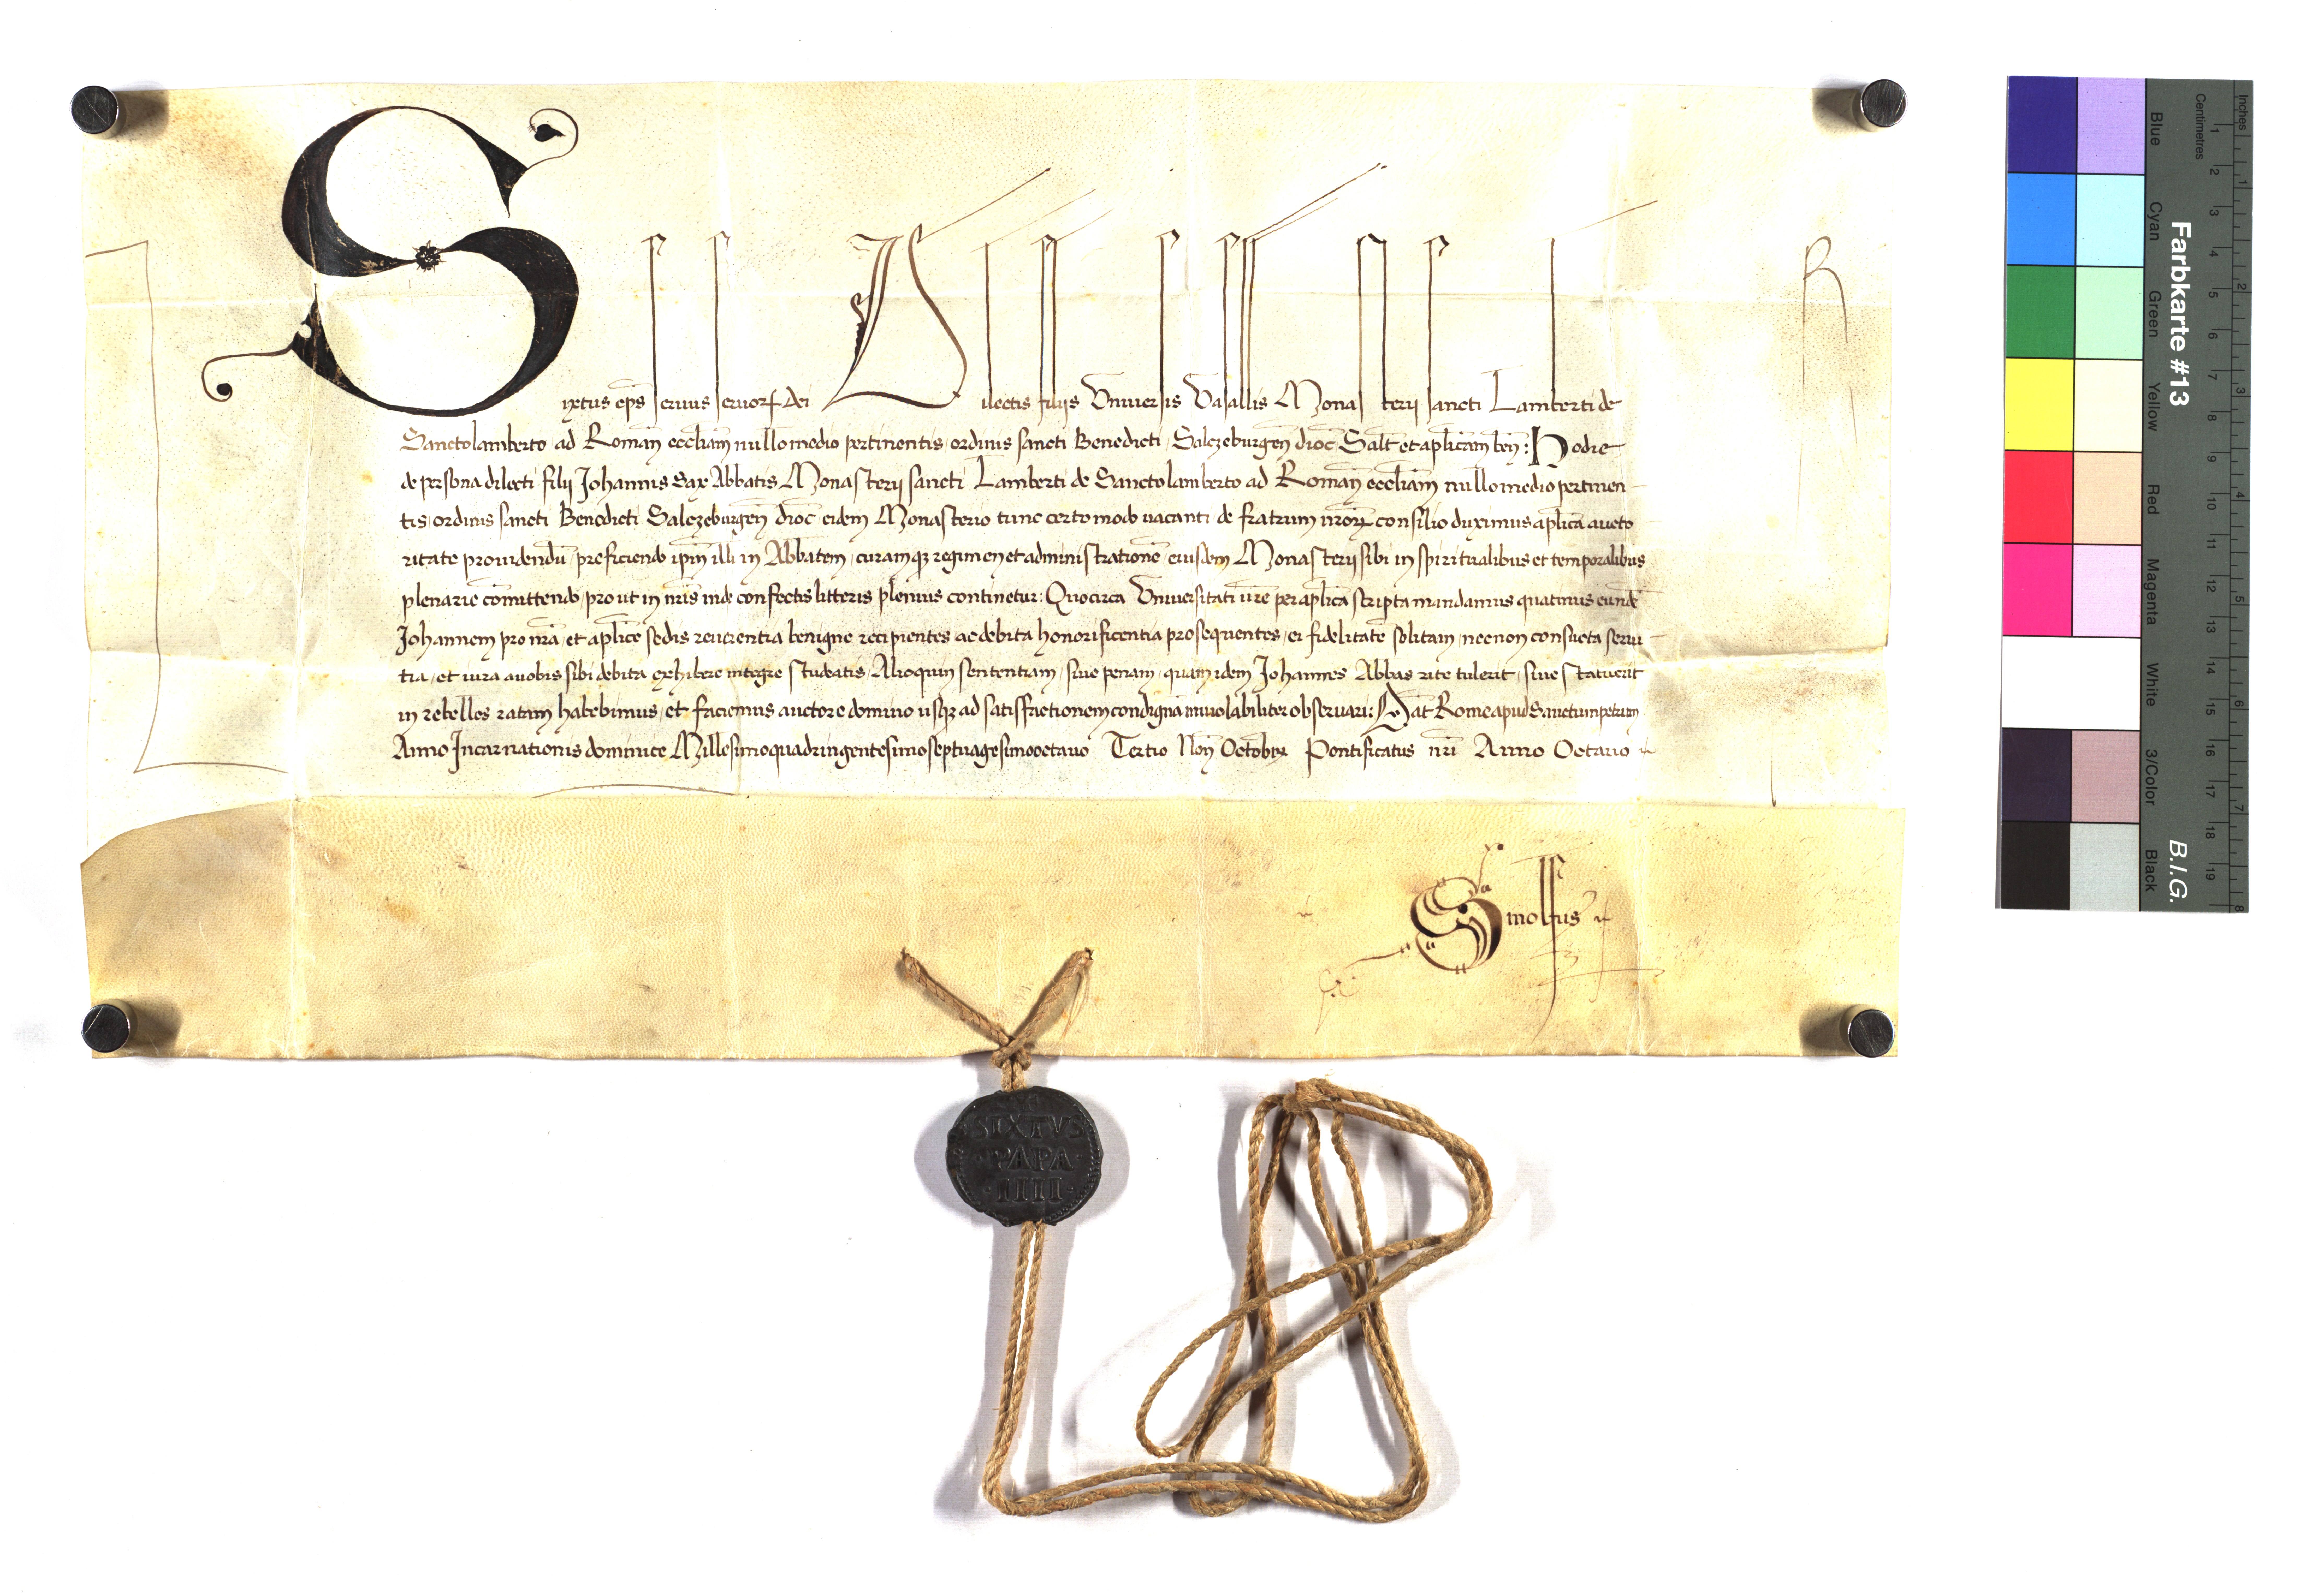 Sixtus ep̄s seruus seruorꝝ dei Dilectis filijs Vniuersis Vasallis Monasterij sancti Lamberti de
Sanctolamberto ad Romañ eccl̄iam nullo medio pertinentis ordinis sancti Benedicti Salczeburgeñ dioc̄ Sal̄t et ap̄licam beñ: Hodie
de persona dilecti filij Johannis Sax Abbatis Monasterij sancti Lamberti de Sanctolamberto ad Romañ eccl̄iam nullo medio pertinen
tis ordinis sancti Benedicti Salczeburgeñ dioc̄ eidem Monasterio tunc certo modo uacanti de fratrum nr̄orꝝ consilio duximus ap̄lica aucto
ritate prouidendū preficiendo ip̄m illi in Abbatem, curamqꝫ regimen et administrationē eiusdem Monasterij sibi in spiritualibus et temporalibus
plenarie cōmittendo, prout in nr̄is inde confectis litteris plenius continetur: Quocirca Vniuersitati ur̄e per ap̄lica scripta mandamus quatinus eundē
Johannem pro nr̄a, et ap̄lice sedis reuerentia benigne recipientes ac debita honorificentia prosequentes, ei fidelitatē solitam, necnon consueta serui
tia, et iura auobis sibi debita exhibere integre studeatis, Alioquin sententiam, siue penam, quam idem Johannes Abbas rite tulerit, siue statuerit
in rebelles ratam habebimus, et faciemus auctore domino usqꝫ ad satisfactionem condignā inuiolabiliter obseruari: Dat̄ Rome apud Sanctumpetrum
Anno Incarnationis dominice Millesimoquadringentesimoseptuagesimooctauo Tertio Noñ Octobrꝭ Pontificatus nr̄i Anno Octauo
L
R
Smolfus
SIXTVS
PAPA
IIII
Farbkarte #13
B.I.G.
Blue Cyan Green Yellow Red Magenta White 3/Color Black
Centimetres 1 2 3 4 5 6 7 8 9 10 11 12 13 14 15 16 17 18 19
Inches 1 2 3 4 5 6 7 8